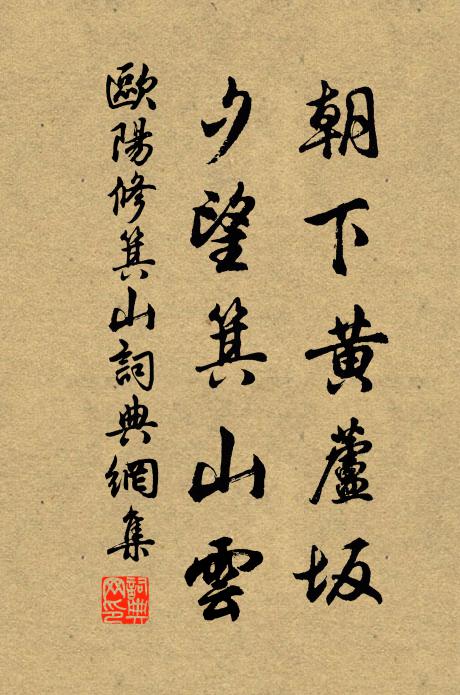 朝下黄蘆坂
夕望箕山雲
歐陽修箕山詞典網集
詞典網印